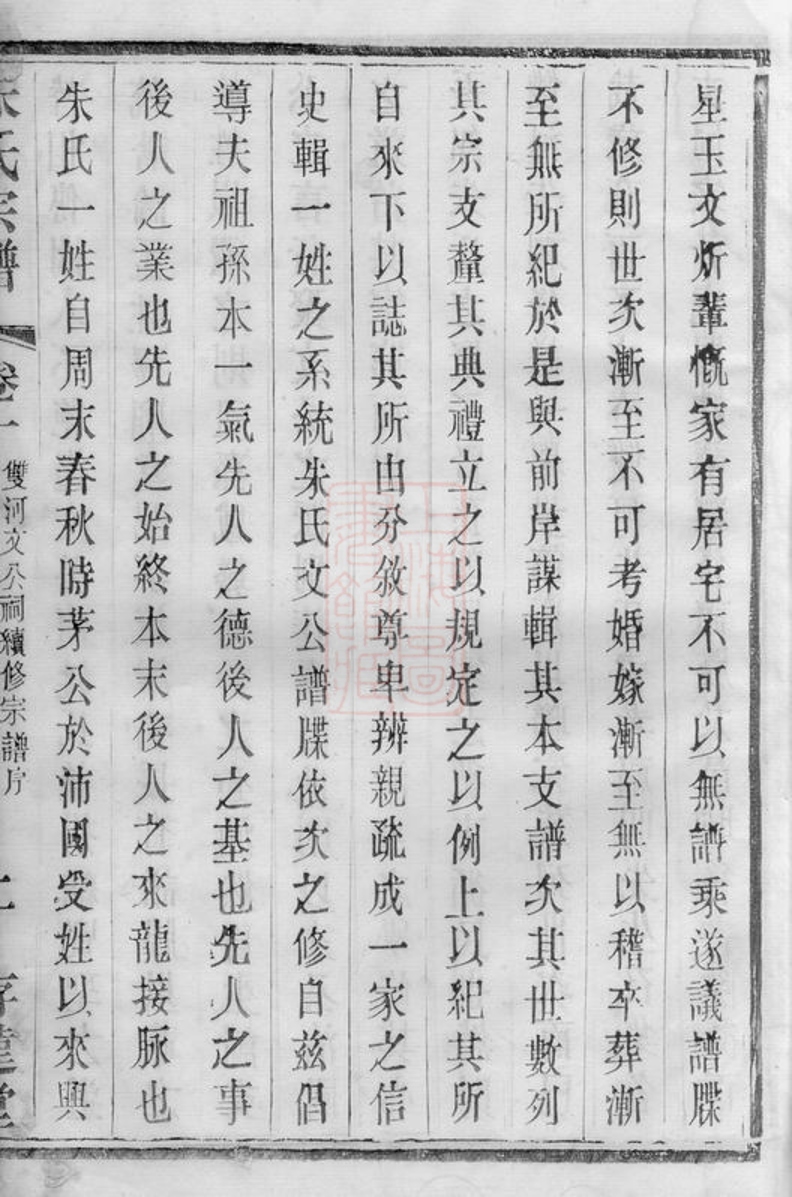 星玉文炘輩慨家有居宅不可以無譜乘遂議譜牒
不修則世次漸至不可考婚嫁漸至無以稽卒葬漸
至無所紀於是與前岸謀輯其本支譜次其世數列
其宗支釐其典禮立之以規定之以例上以紀其所
自來下以誌其所由分敘尊卑辨親疏成一家之信
史輯一姓之系統朱氏文公譜牒依次之修自茲倡
導夫祖孫本一氣先人之德後人之基也先人之事
後人之業也先人之始終本末後人之來龍接脉也
朱氏一姓自周末春秋時茅公於沛國受姓以來興
朱氏宗譜 卷一 雙河文公祠續修宗譜序 二